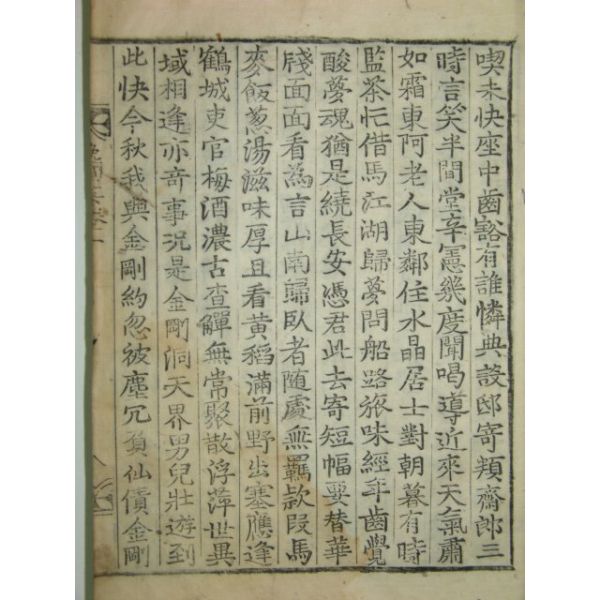 喫未快座中齒豁有誰憐典設邸寄類齋郎三
時言笑半間堂辛憲幾度聞喝導近來天氣肅
如霜東阿老人東鄰住水晶居士對朝暮有時
監茶忙借馬江湖歸夢問船路旅味經年齒覺
酸夢魂猶是繞長安憑君此去寄短幅要替華
牋面面看為言山南歸臥者隨處無羈款段馬
麥飯葱湯滋味厚且看黃稻滿前野出塞應逢
鶴城吏官梅酒濃古查觶無常聚散浮萍世異
域相逢亦奇事況是金剛洞天界男兒壯遊到
此快今秋我與金剛約忽被塵冗負仙債金剛